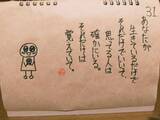 31
あなたが
生きているだけで
それだけでいいって
思ってる人は
確かにいる。
それだけは
覚えていて。